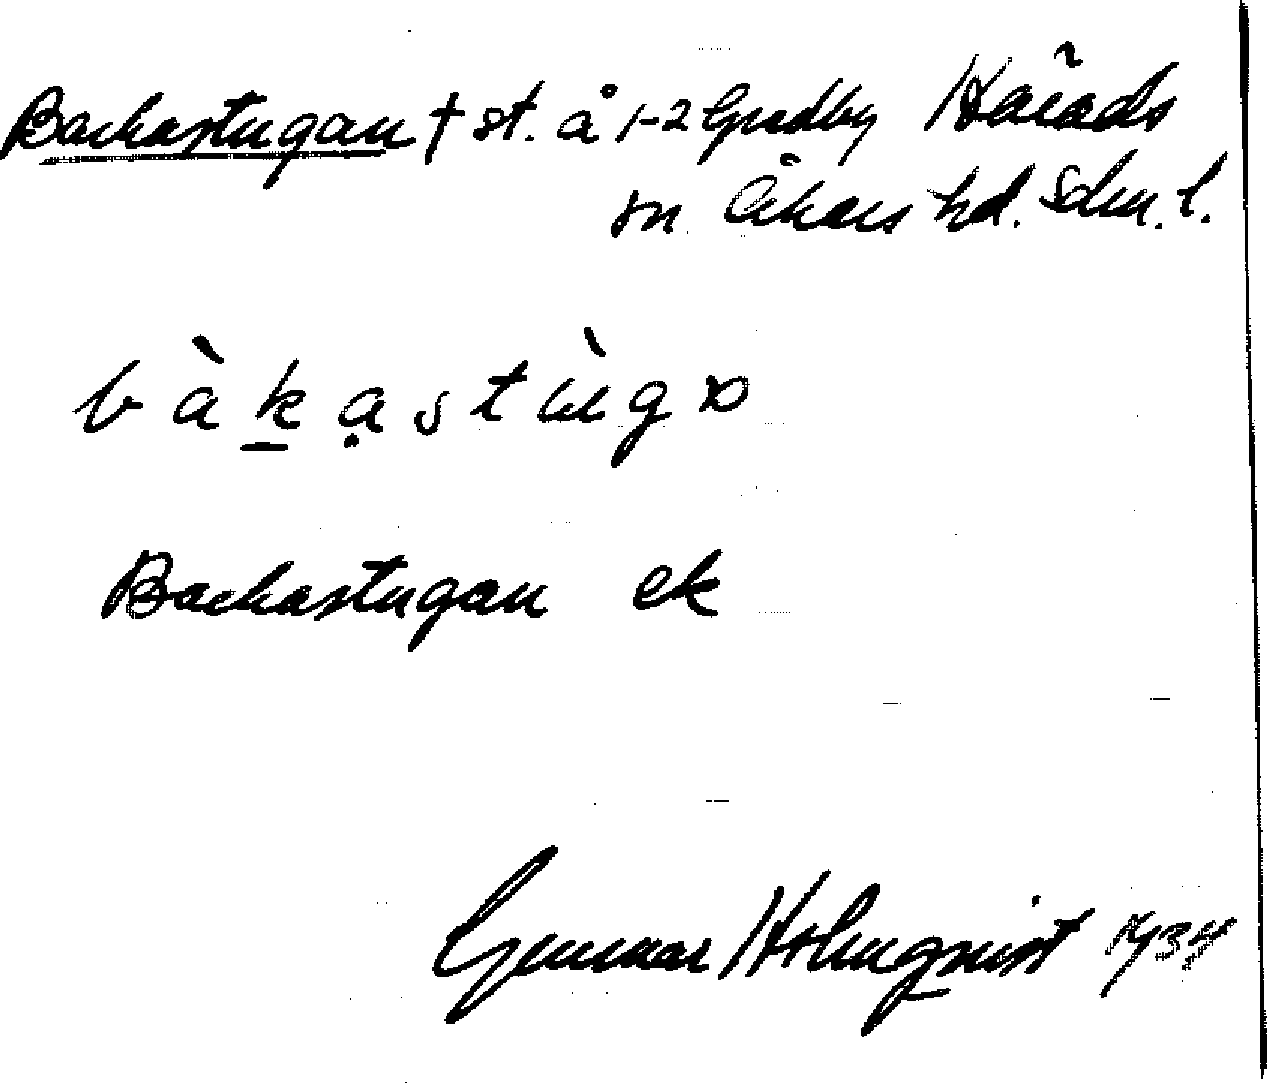 Backastugan † st. å 1-2 Gredby Härads
sn Åkers hd. Sdm. l.
bàkạstùgɷ
Backastugan ek
Gunnar Holmqvist 1934